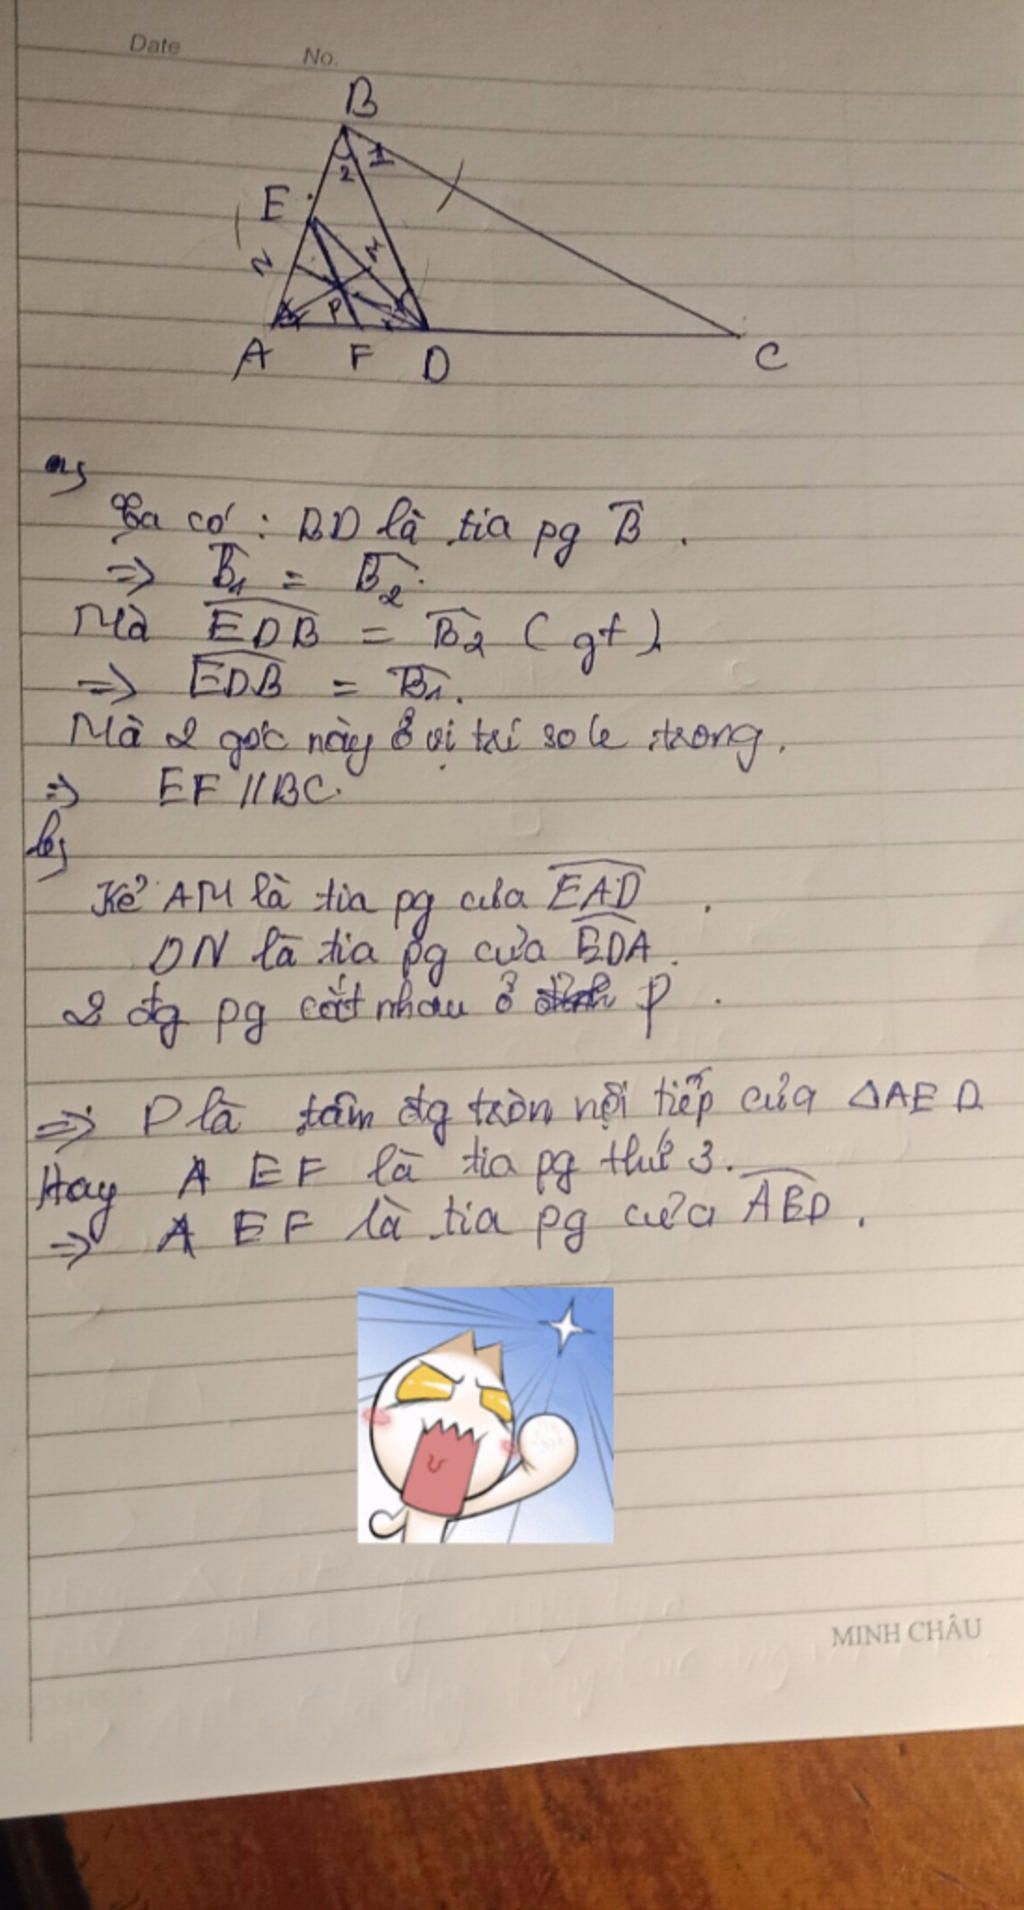 Date No.
B
1
2
E
N M
P
A F D C
a,
Ta có : BD là tia pg B̂ .
=> B̂1 = B̂2.
Mà EDB = B̂2 ( gt )
=> EDB = B̂1.
Mà 2 góc này ở vị trí so le trong.
=> EF // BC.
b,
Kẻ AM là tia pg của EAD .
DN là tia pg của EDA .
2 đg pg cắt nhau ở P .
=> P là tâm đg tròn nội tiếp của ΔAED
Hay EF là tia pg thứ 3.
=> EF là tia pg của AED .
MINH CHÂU